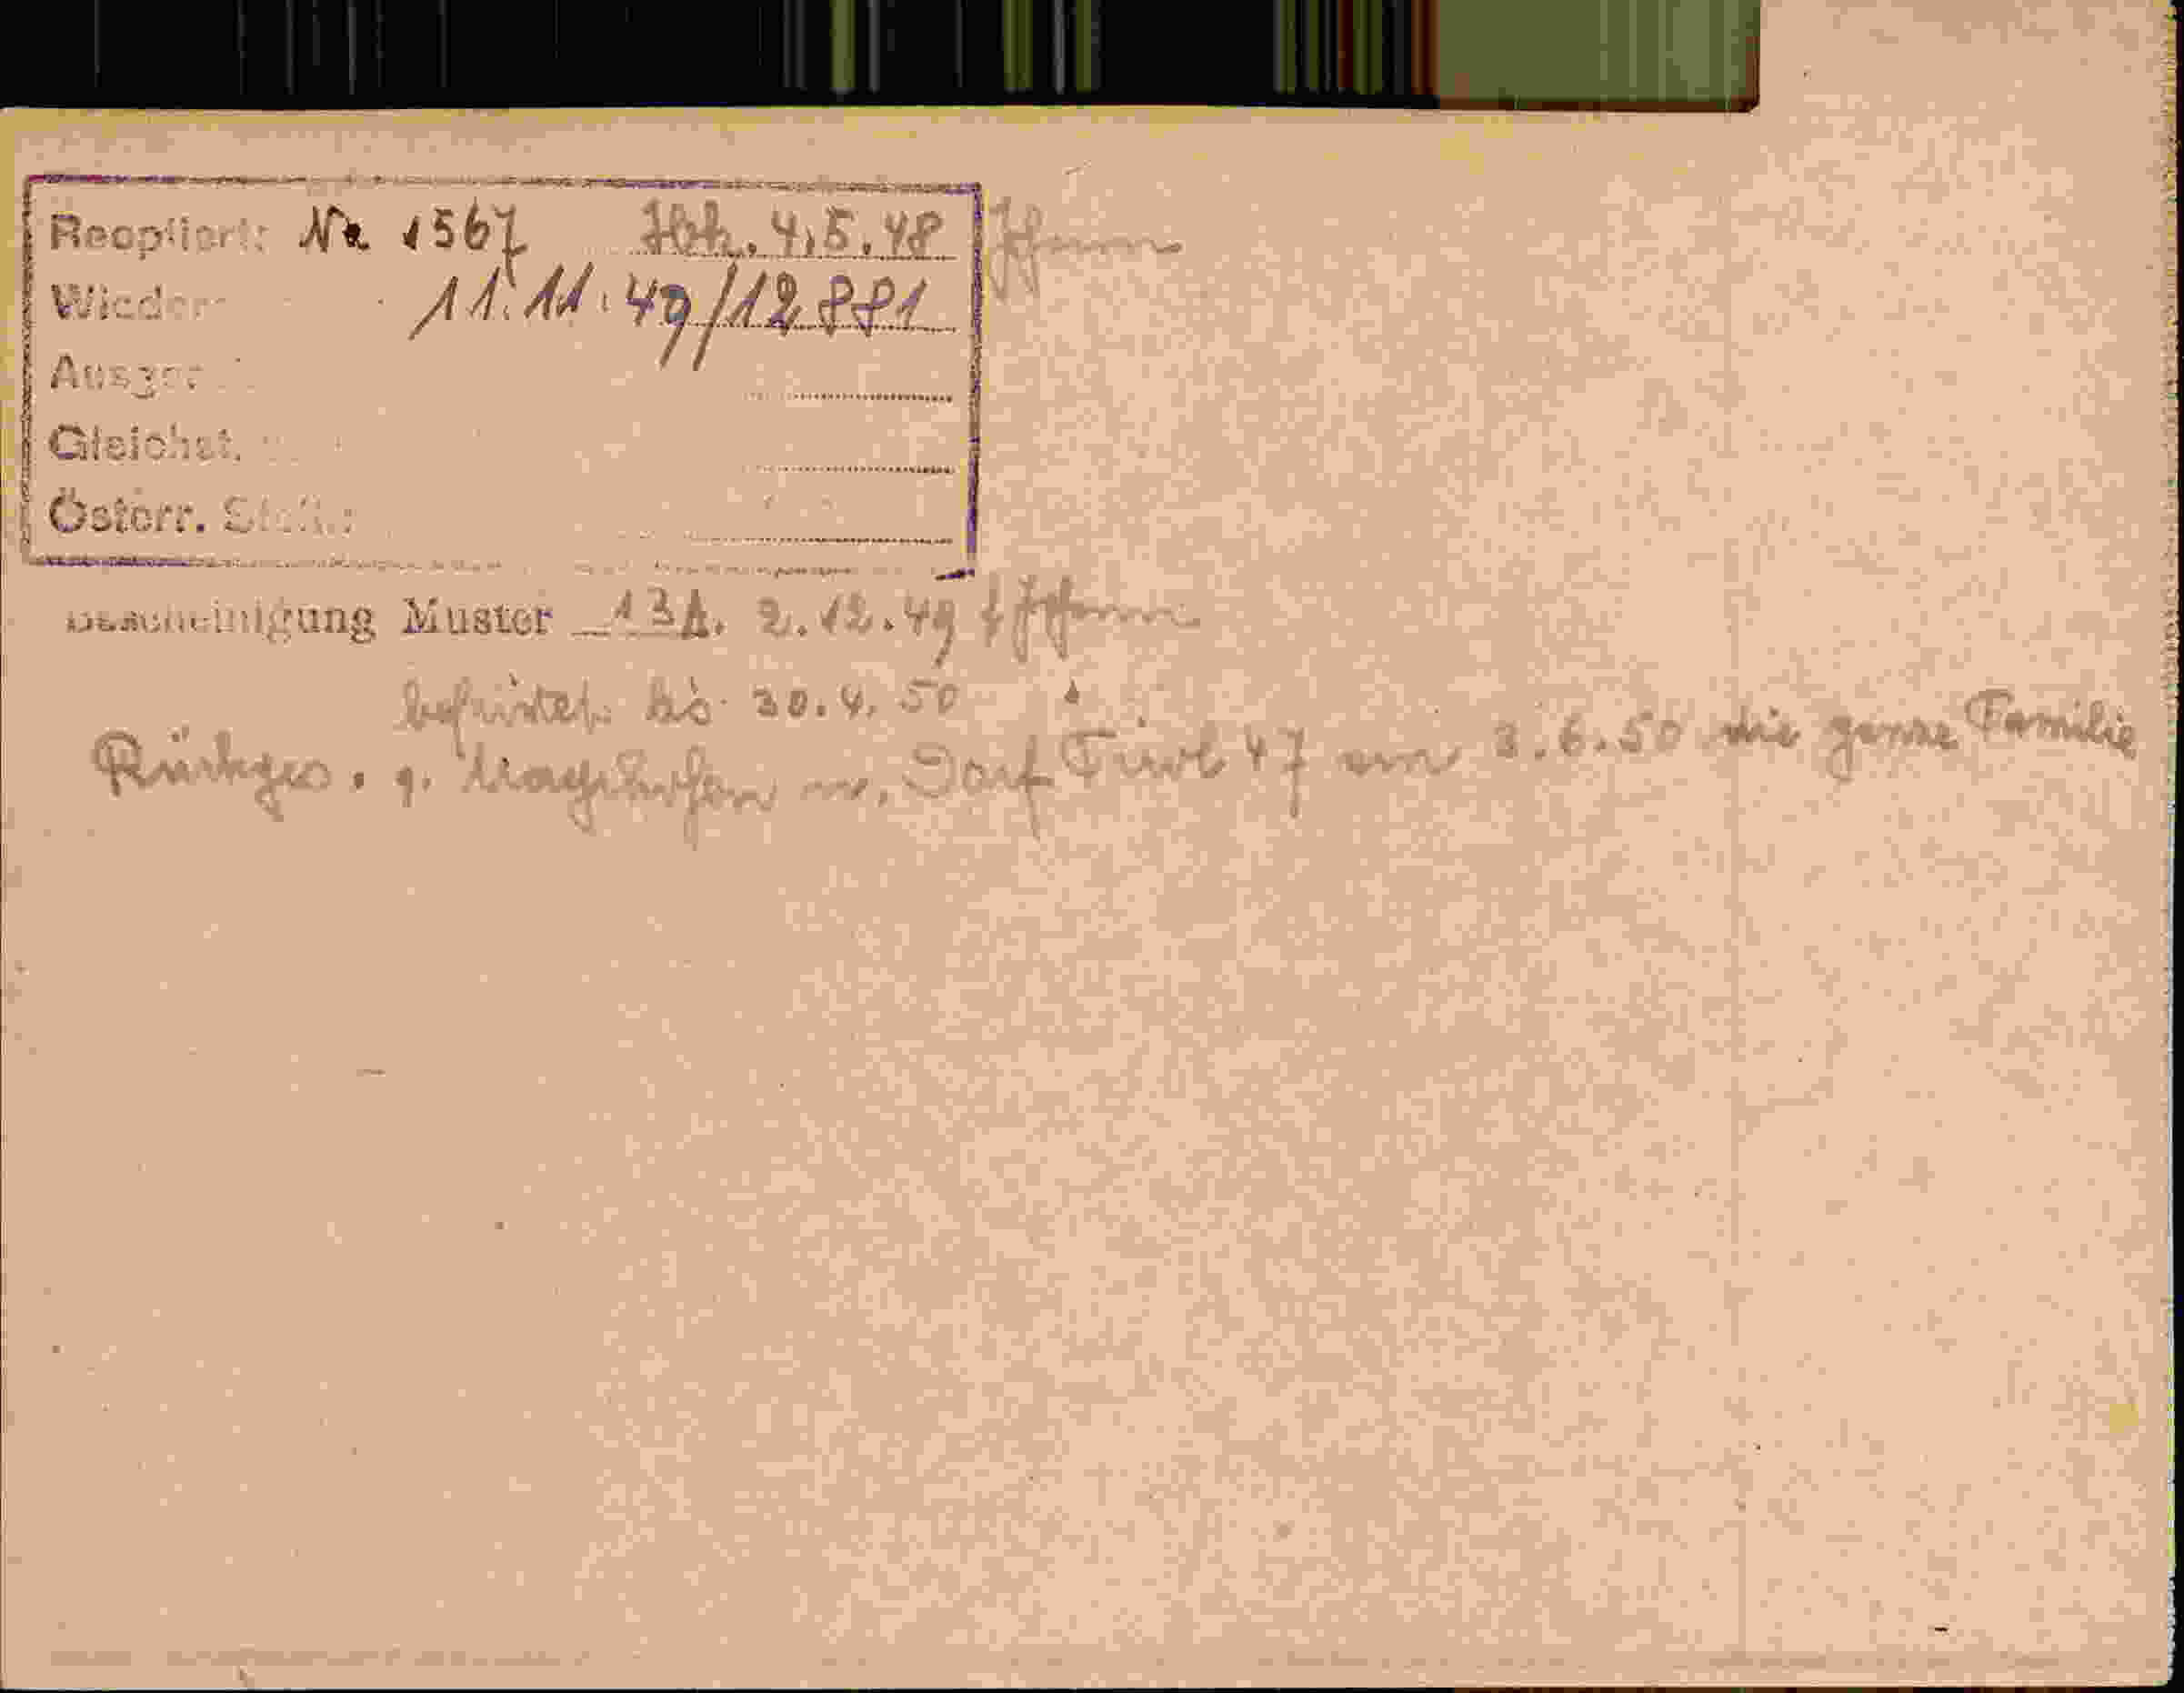 Reoptiert: No 1567 Ibk. 4.5.48
Wieder 11.11.49/12881
Ausger
Gleichst.
Österr. St
Bescheinigung Muster 13A. 2.12.49
befristet bis 30.4.50
Rückges. n. Dorf Tirol 47 am 3.6.50 die ganze Familie